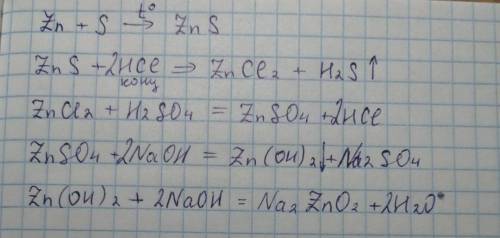 Zn + S t°→ ZnS
ZnS + 2HCl конц ⇒ ZnCl₂ + H₂S↑
ZnCl₂ + H₂SO₄ = ZnSO₄ + 2HCl
ZnSO₄ + 2NaOH = Zn(OH)₂↓ + Na₂SO₄
Zn(OH)₂ + 2NaOH = Na₂ZnO₂ + 2H₂O